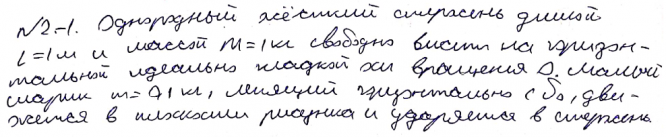 №2-1. Однородный жёсткий стержень длиной
l=1м и массой M=1кг свободно висит на горизон-
тальной идеально гладкой оси вращения O. Малый
шарик m=0,1кг, летящий горизонтально с V₀, дви-
жется в плоскости рисунка и ударяется в стержень